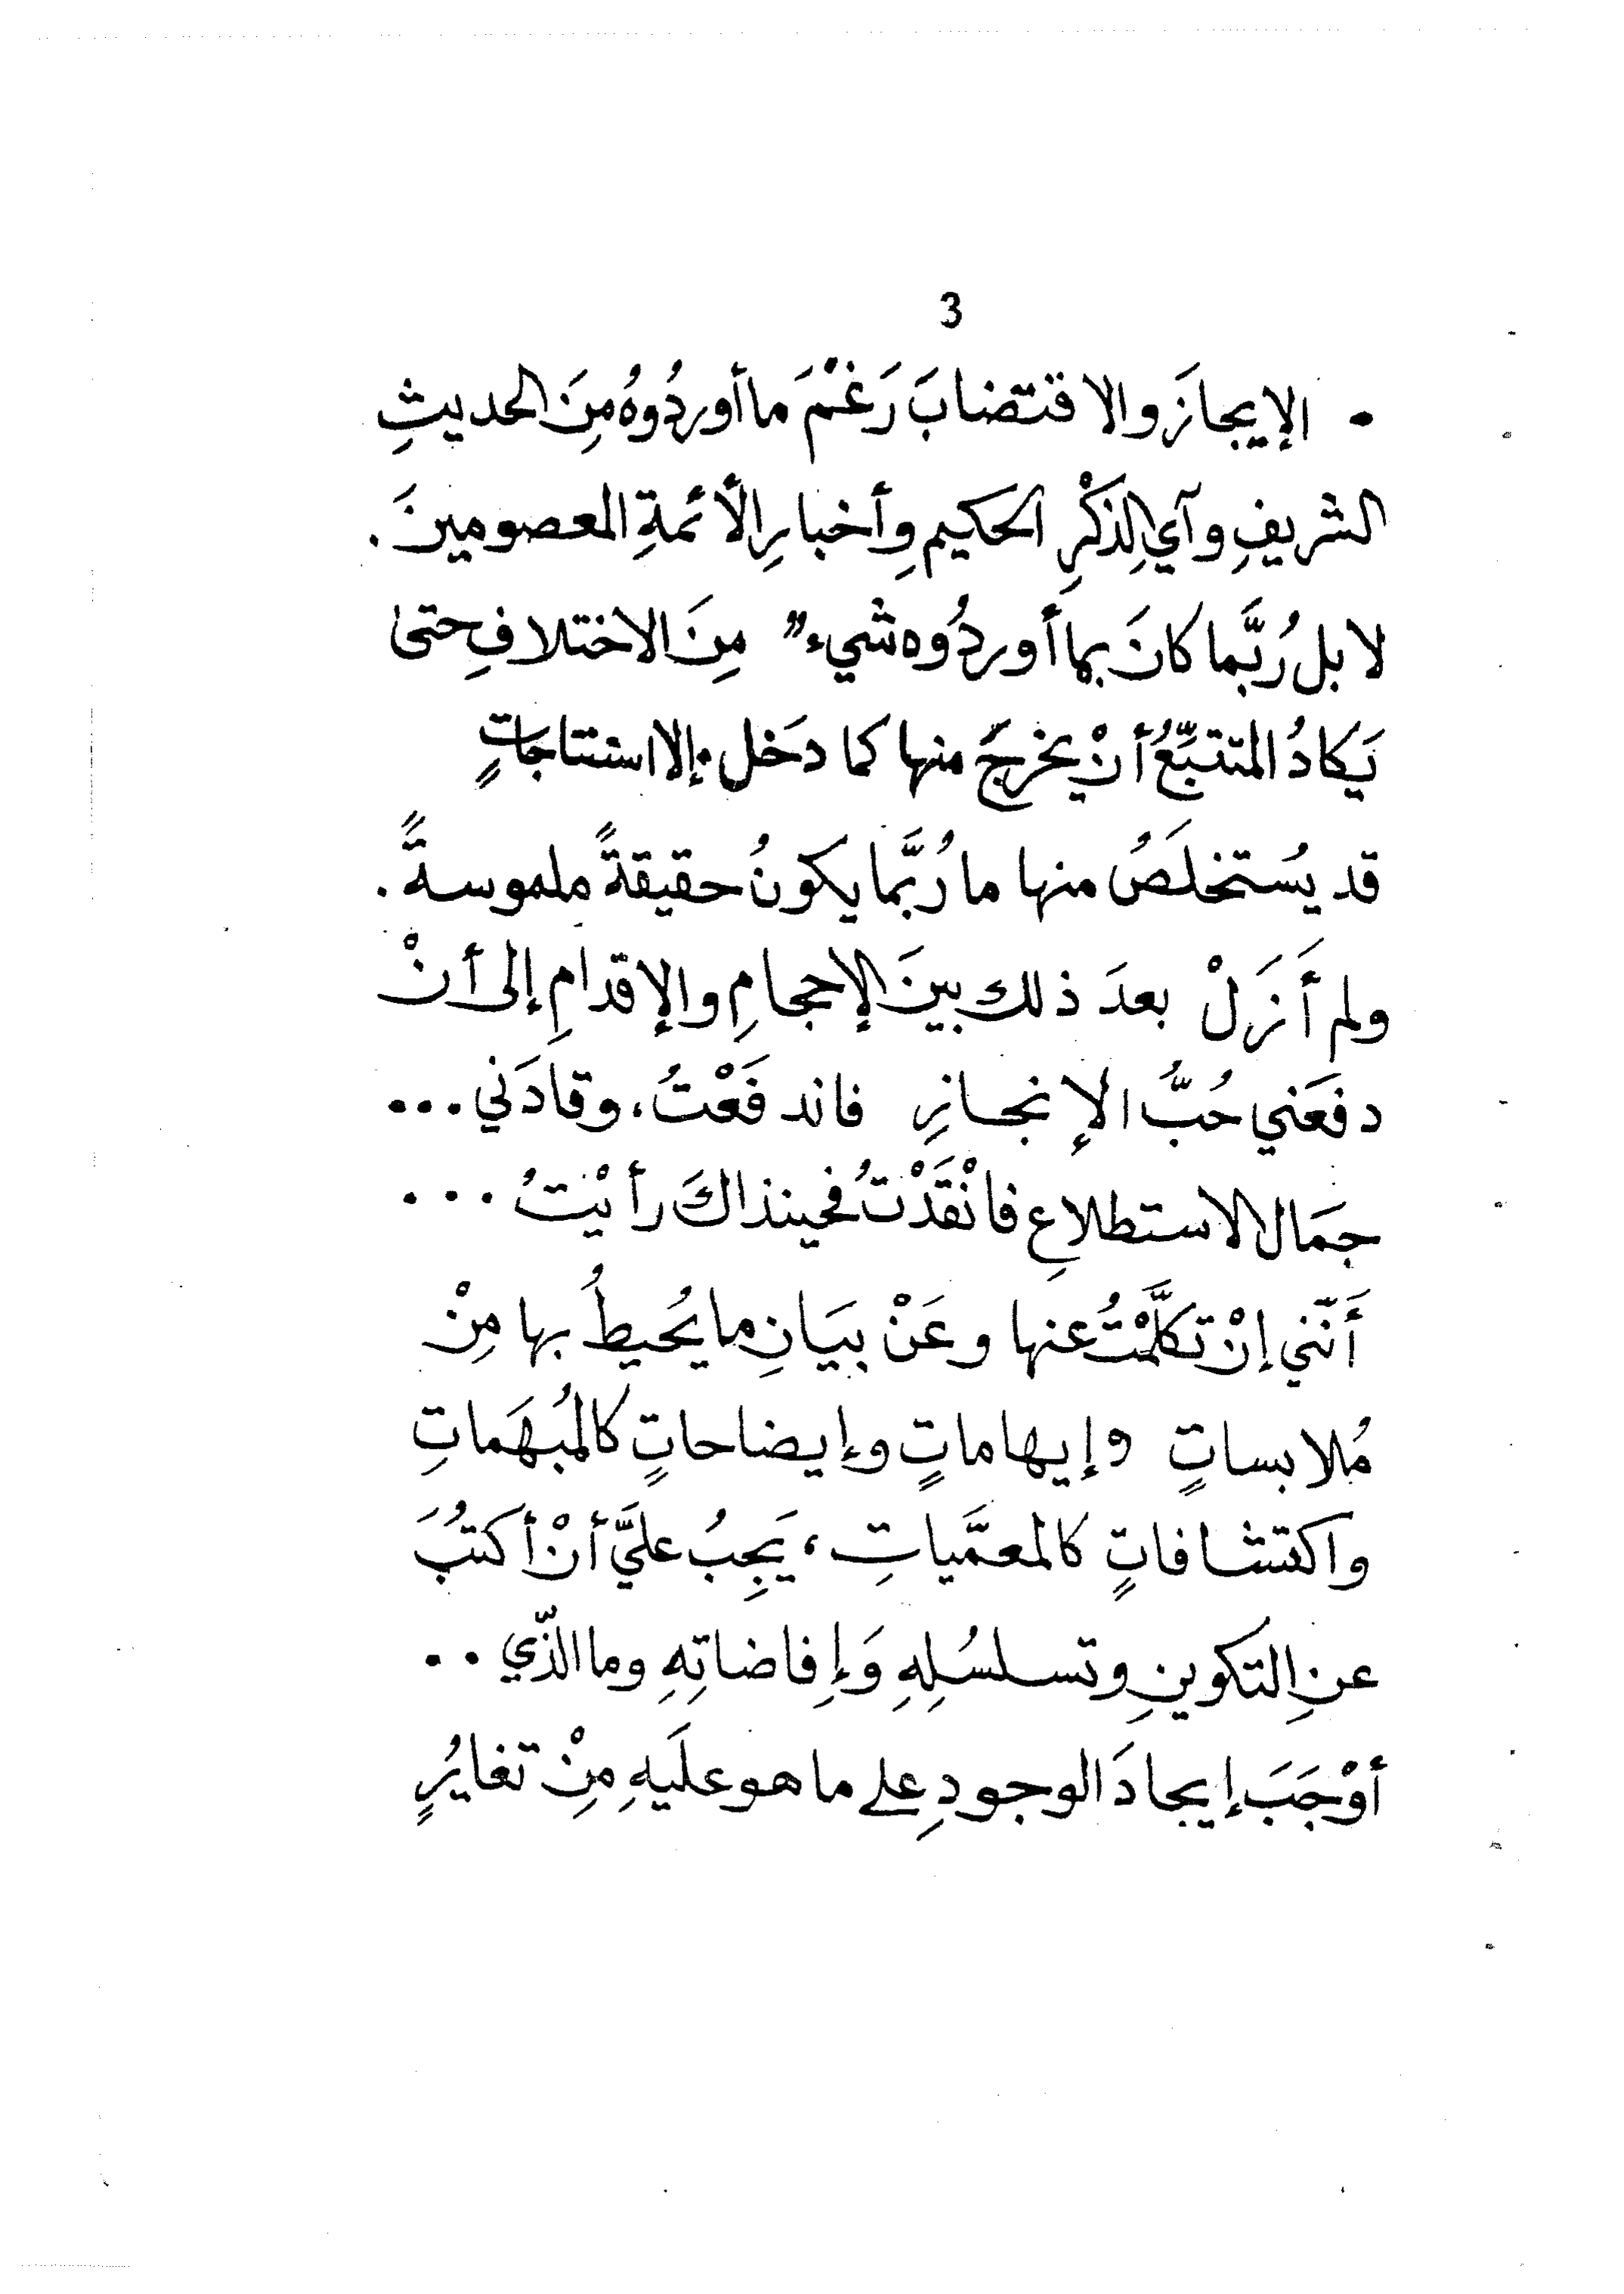 3
• الإيجازَ والاقتضابَ رَغْمَ ما أوردُوهُ مِنَ الحديثِ
الشريفِ وآيِ الذكْرِ الحكيمِ وأخبارِ الأئمةِ المعصومينَ .
لا بل رُبَّما كانَ بما أوردُوه شيءٌ مِنَ الاختلافِ حتى
يَكادُ المتتبِّعُ أنْ يخرجَ منها كما دَخل . إلا استنتاجاتٍ
قد يُستخلَصُ منها ما رُبَّما يكونُ حقيقةً ملموسةً .
ولم أَزَلْ بعدَ ذلك بينَ الإحجامِ والإقدامِ إلى أنْ
دفعَني حُبُّ الإنجازِ فاندفَعْتُ، وقادَني ...
جمَال الاستطلاعِ فانْقَدْتُ فحينذاكَ رأيْتُ ...
أَنّني إنْ تكلَّمْتُ عنها وعَنْ بيَانِ ما يُحيطُ بها مِنْ
مُلابساتٍ وإيهاماتٍ وإيضاحاتٍ كالمُبهَماتِ
واكتشافاتٍ كالمعمَّياتِ، يَجِبُ عليَّ أنْ أكتُبَ
عنِ التكوينِ وتسلسُلِهِ وَإِفاضاتِهِ وما الذّي ..
أوْجَبَ إيجادَ الوجودِ على ما هو علَيهِ مِنْ تغايُرٍ